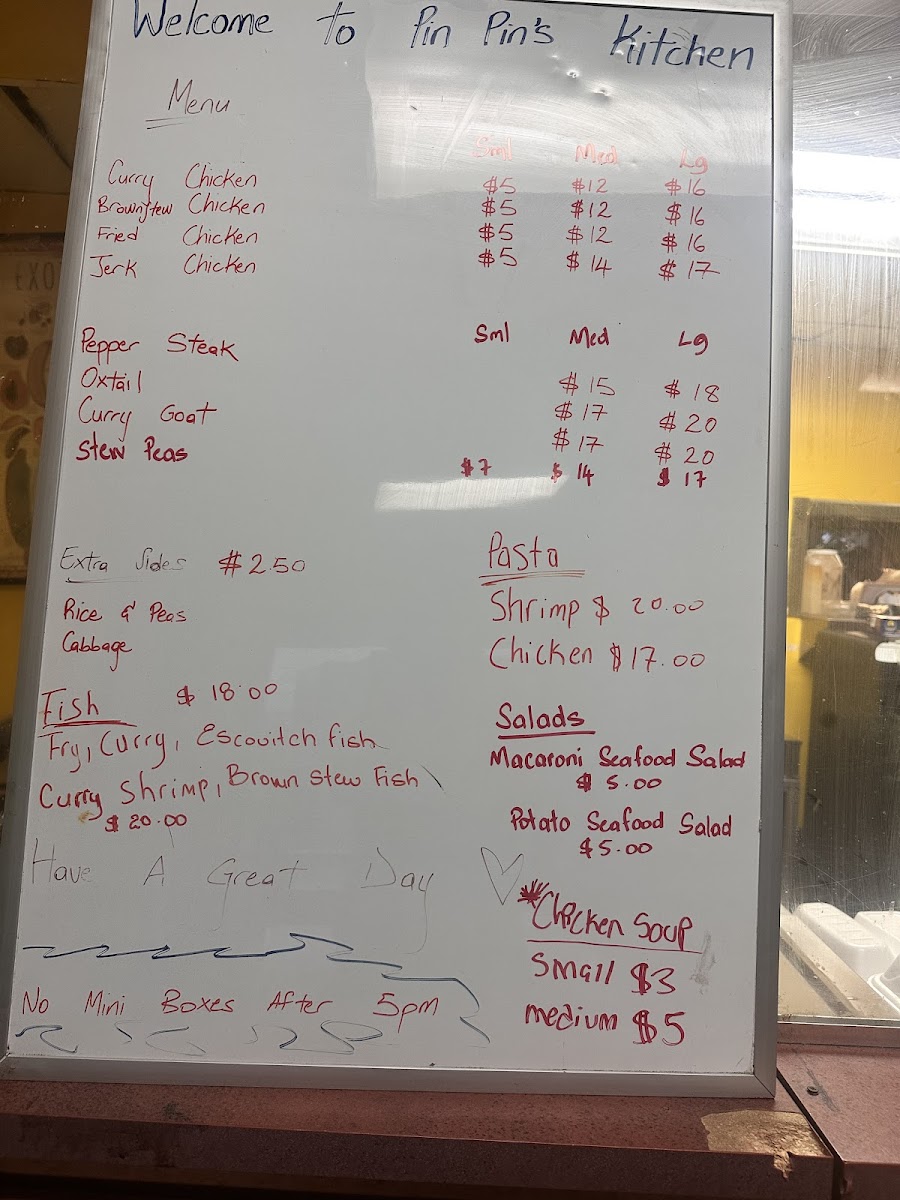 Welcome to Pin Pin's Kiitchen
Menu
Sml Med Lg
Curry Chicken $5 $12 $16
Brownstew Chicken $5 $12 $16
Fried Chicken $5 $12 $16
Jerk Chicken $5 $14 $17
Sml Med Lg
Pepper Steak $15 $18
Oxtail $17 $20
Curry Goat $17 $20
Stew Peas $7 $14 $17
Extra Sides $2.50
Rice & Peas
Cabbage
Fish $18.00
Fry, Curry, Escovitch fish
Curry Shrimp, Brown Stew Fish
$20.00
Pasta
Shrimp $20.00
Chicken $17.00
Salads
Macaroni Seafood Salad
$5.00
Potato Seafood Salad
$5.00
Have A Great Day
Chicken Soup
Small $3
medium $5
No Mini Boxes After 5pm